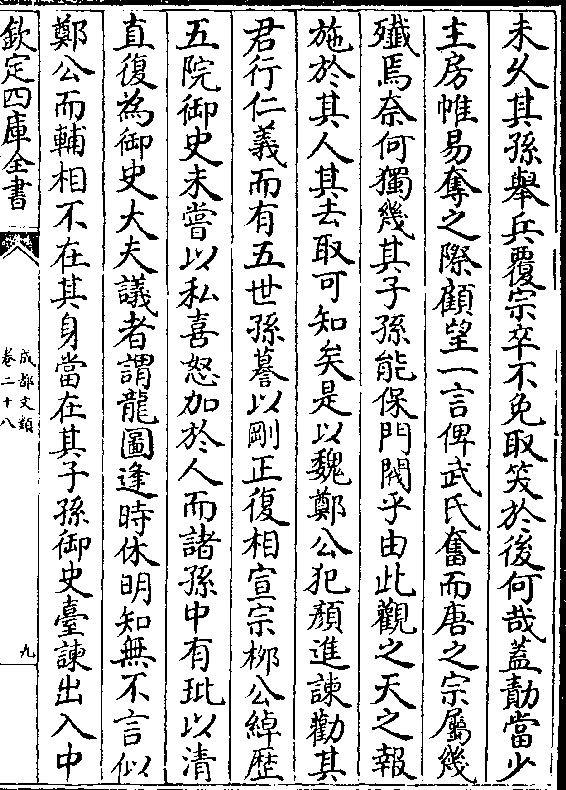 未久其孫舉兵覆宗卒不免取笑於後何哉蓋勣當少
主房帷易奪之際顧望一言俾武氏奮而唐之宗屬幾
殲焉奈何獨幾其子孫能保門閥乎由此觀之天之報
施於其人其去取可知矣是以魏鄭公犯顏進諫勸其
君行仁義而有五世孫謩以剛正復相宣宗栁公綽歴
五院御史未嘗以私喜怒加於人而諸孫中有玭以清
直復為御史大夫議者謂龍圖逢時休明知無不言似
鄭公而輔相不在其身當在其子孫御史臺諫出入中
欽定四庫全書
成都文類
卷二十八
九